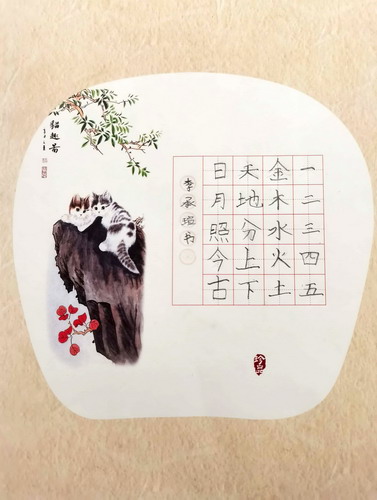 一二三四五
金木水火土
天地分上下
日月照今古
李承书
貓趣
珍品